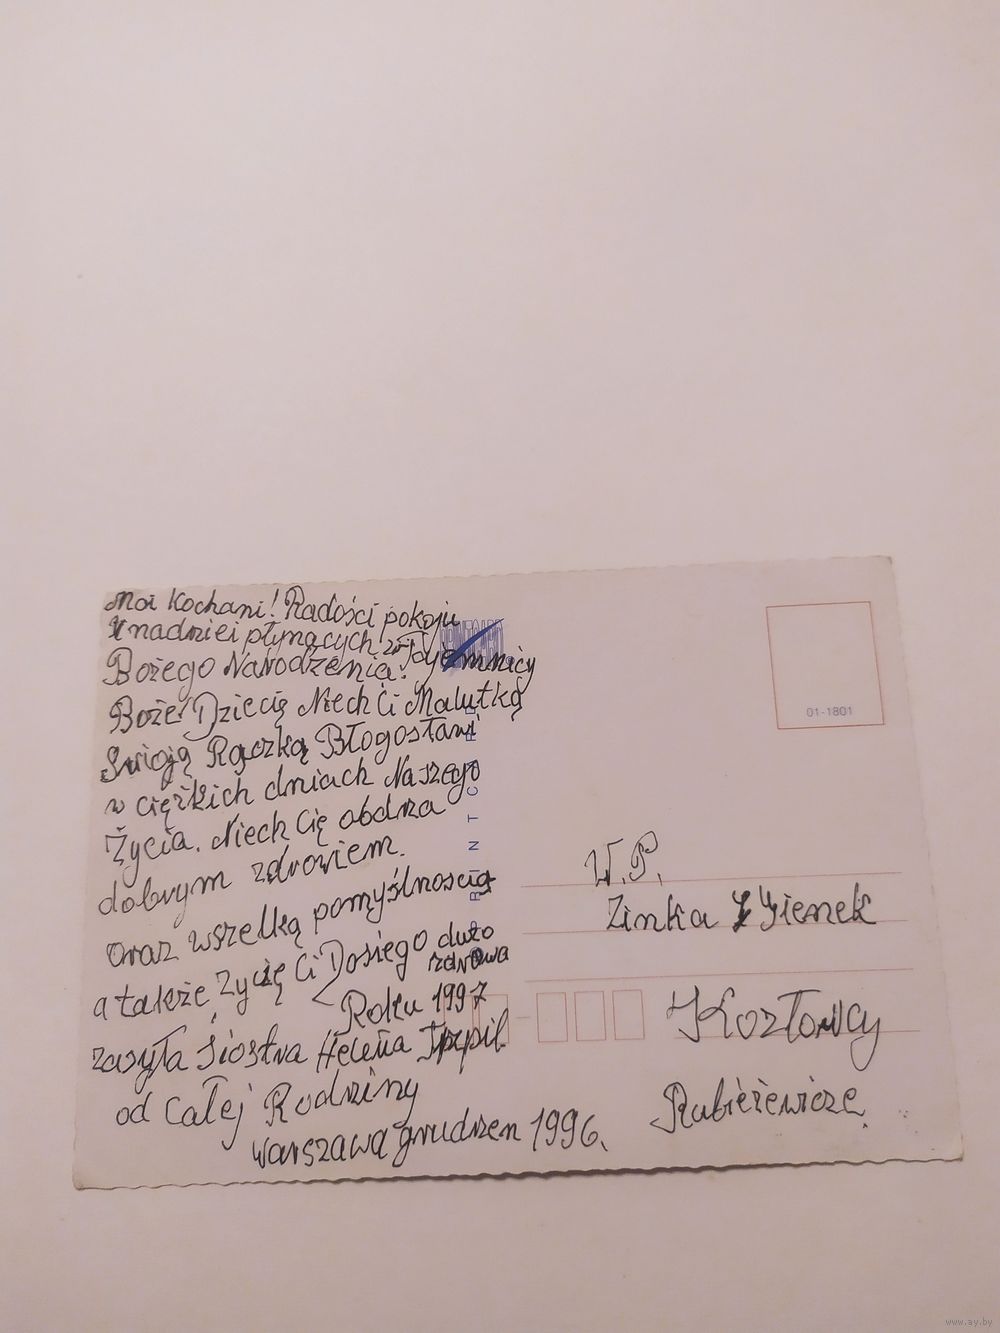 Moi Kochani! Radości pokoju
I nadziei płynących z Tajemnicy
Bożego Narodzenia!
Boże! Dziecię Niech Ci Malutką
Swioją Rączką Błogosławi
w ciężkich dniach Naszego
Życia. Niech Cię obdrza
dobrym zdrowiem.
oraz wszelką pomyślnoscią
a także, Życię Ci Dosiego dużo
zdrowa
Roku 1997
zasyła Siostra Helena
od Całej Rodziny
Warszawa grudzen 1996.
PRINTCARD
PRINTCARD
01-1801
W.P.
Zinka I Gienek
Kozłowcy
Rubieżewicze.
www.ay.by